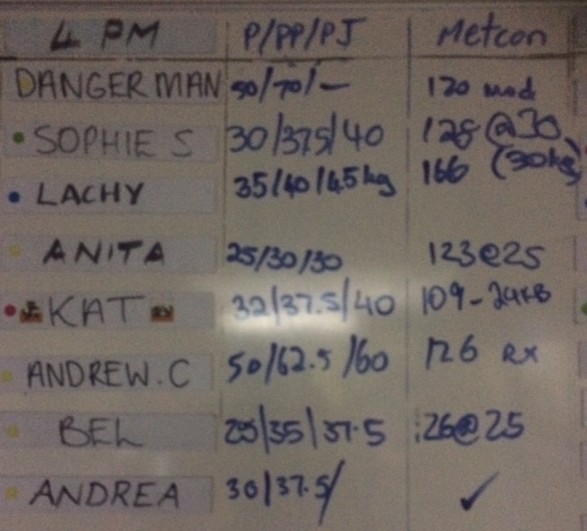 4 PM P/PP/PJ Metcon
DANGER MAN 50/70/- 120 mod
SOPHIE S 30/37.5/40 128@30
LACHY 35/40/45kg 166 (30kg)
ANITA 25/30/30 123@25
KAT 32/37.5/40 109-24KB
ANDREW.C 50/62.5/60 126 Rx
BEL 25/35/37.5 126@25
ANDREA 30/37.5/ ✓